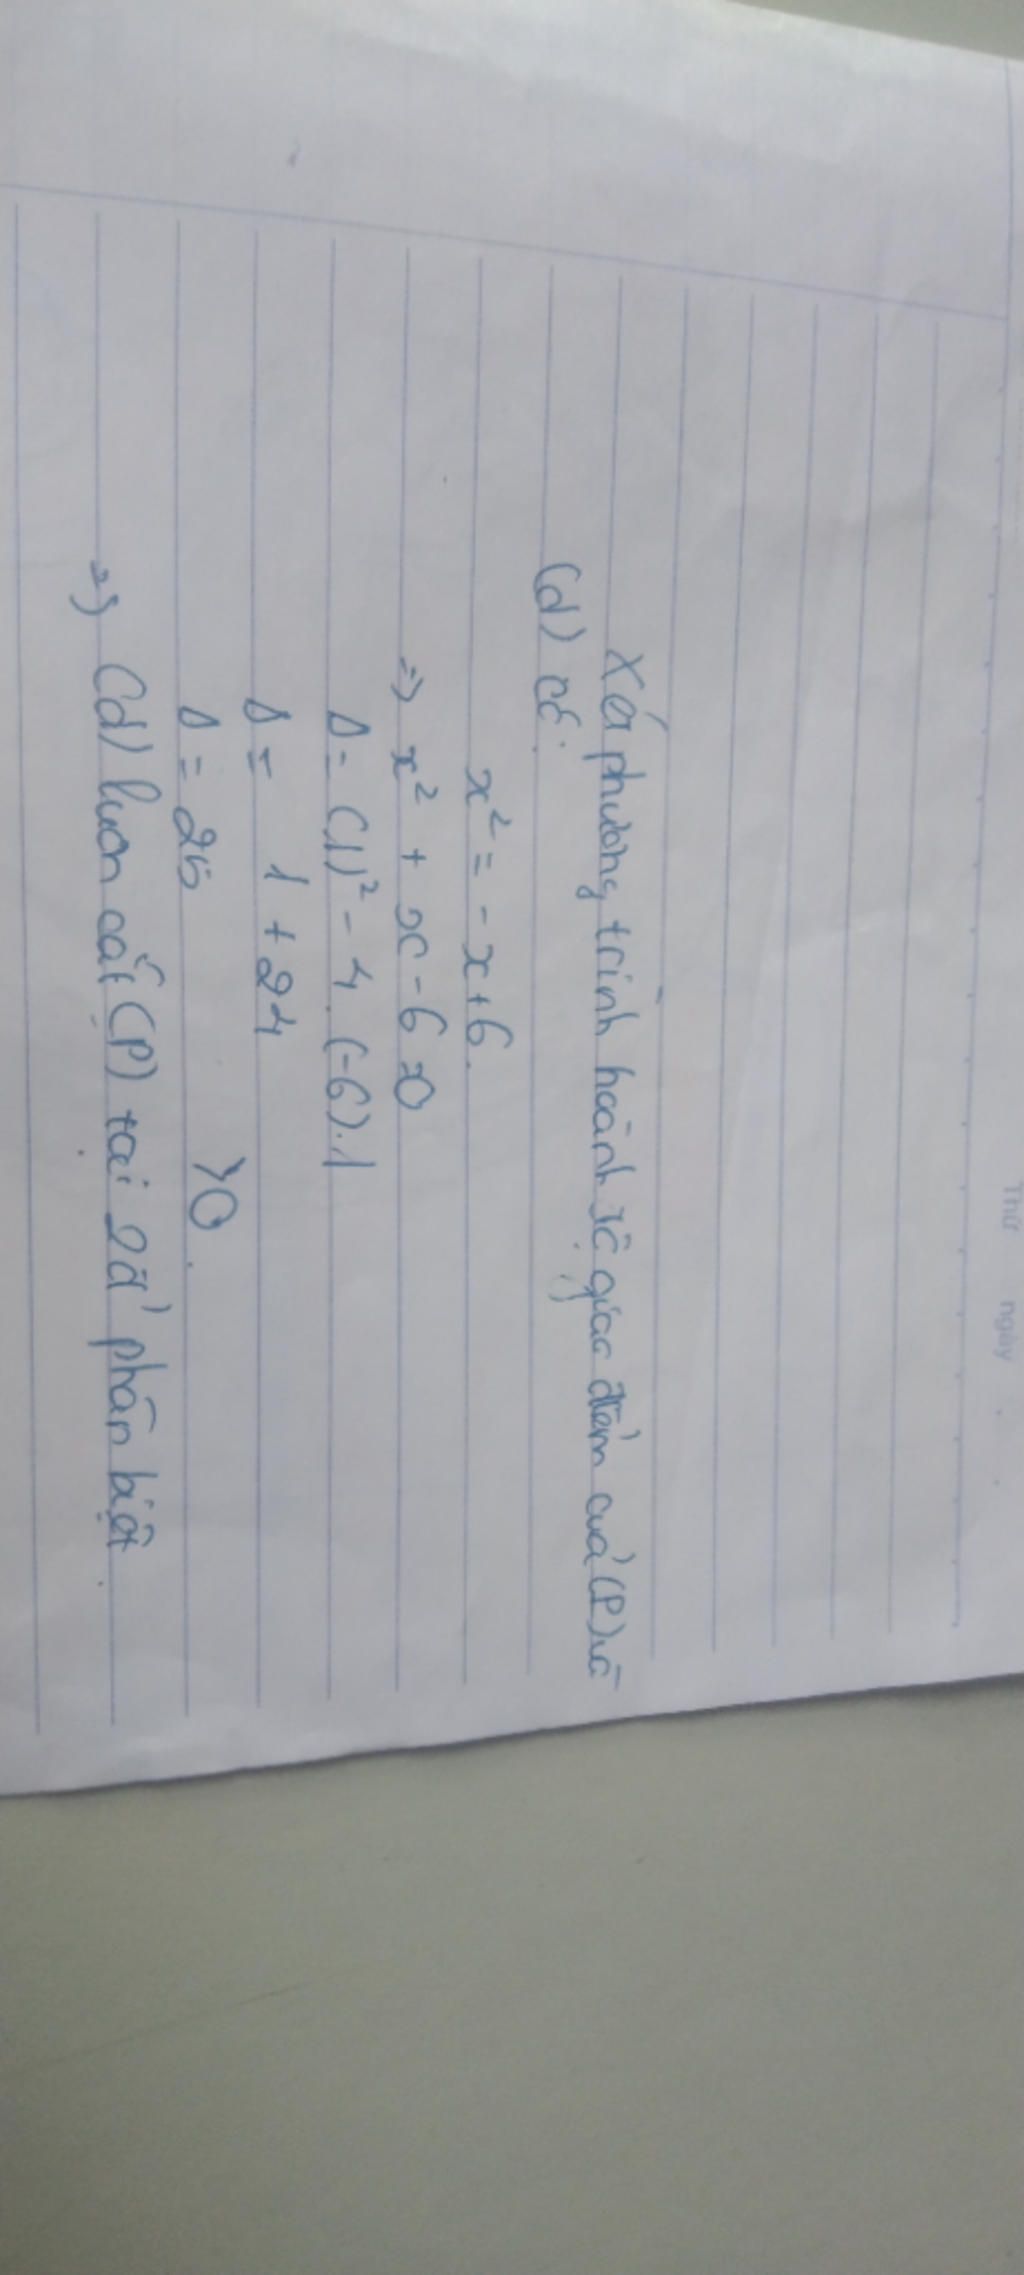 Thứ ngày
Xét phương trình hoành độ giao điểm của (P) và
(d) có:
x² = -x+6.
=> x² + x - 6 = 0
Δ = (1)² - 4.(-6).1
Δ = 1 + 24
Δ = 25 >0.
=> (d) luôn cắt (P) tại 2đ' phân biệt.